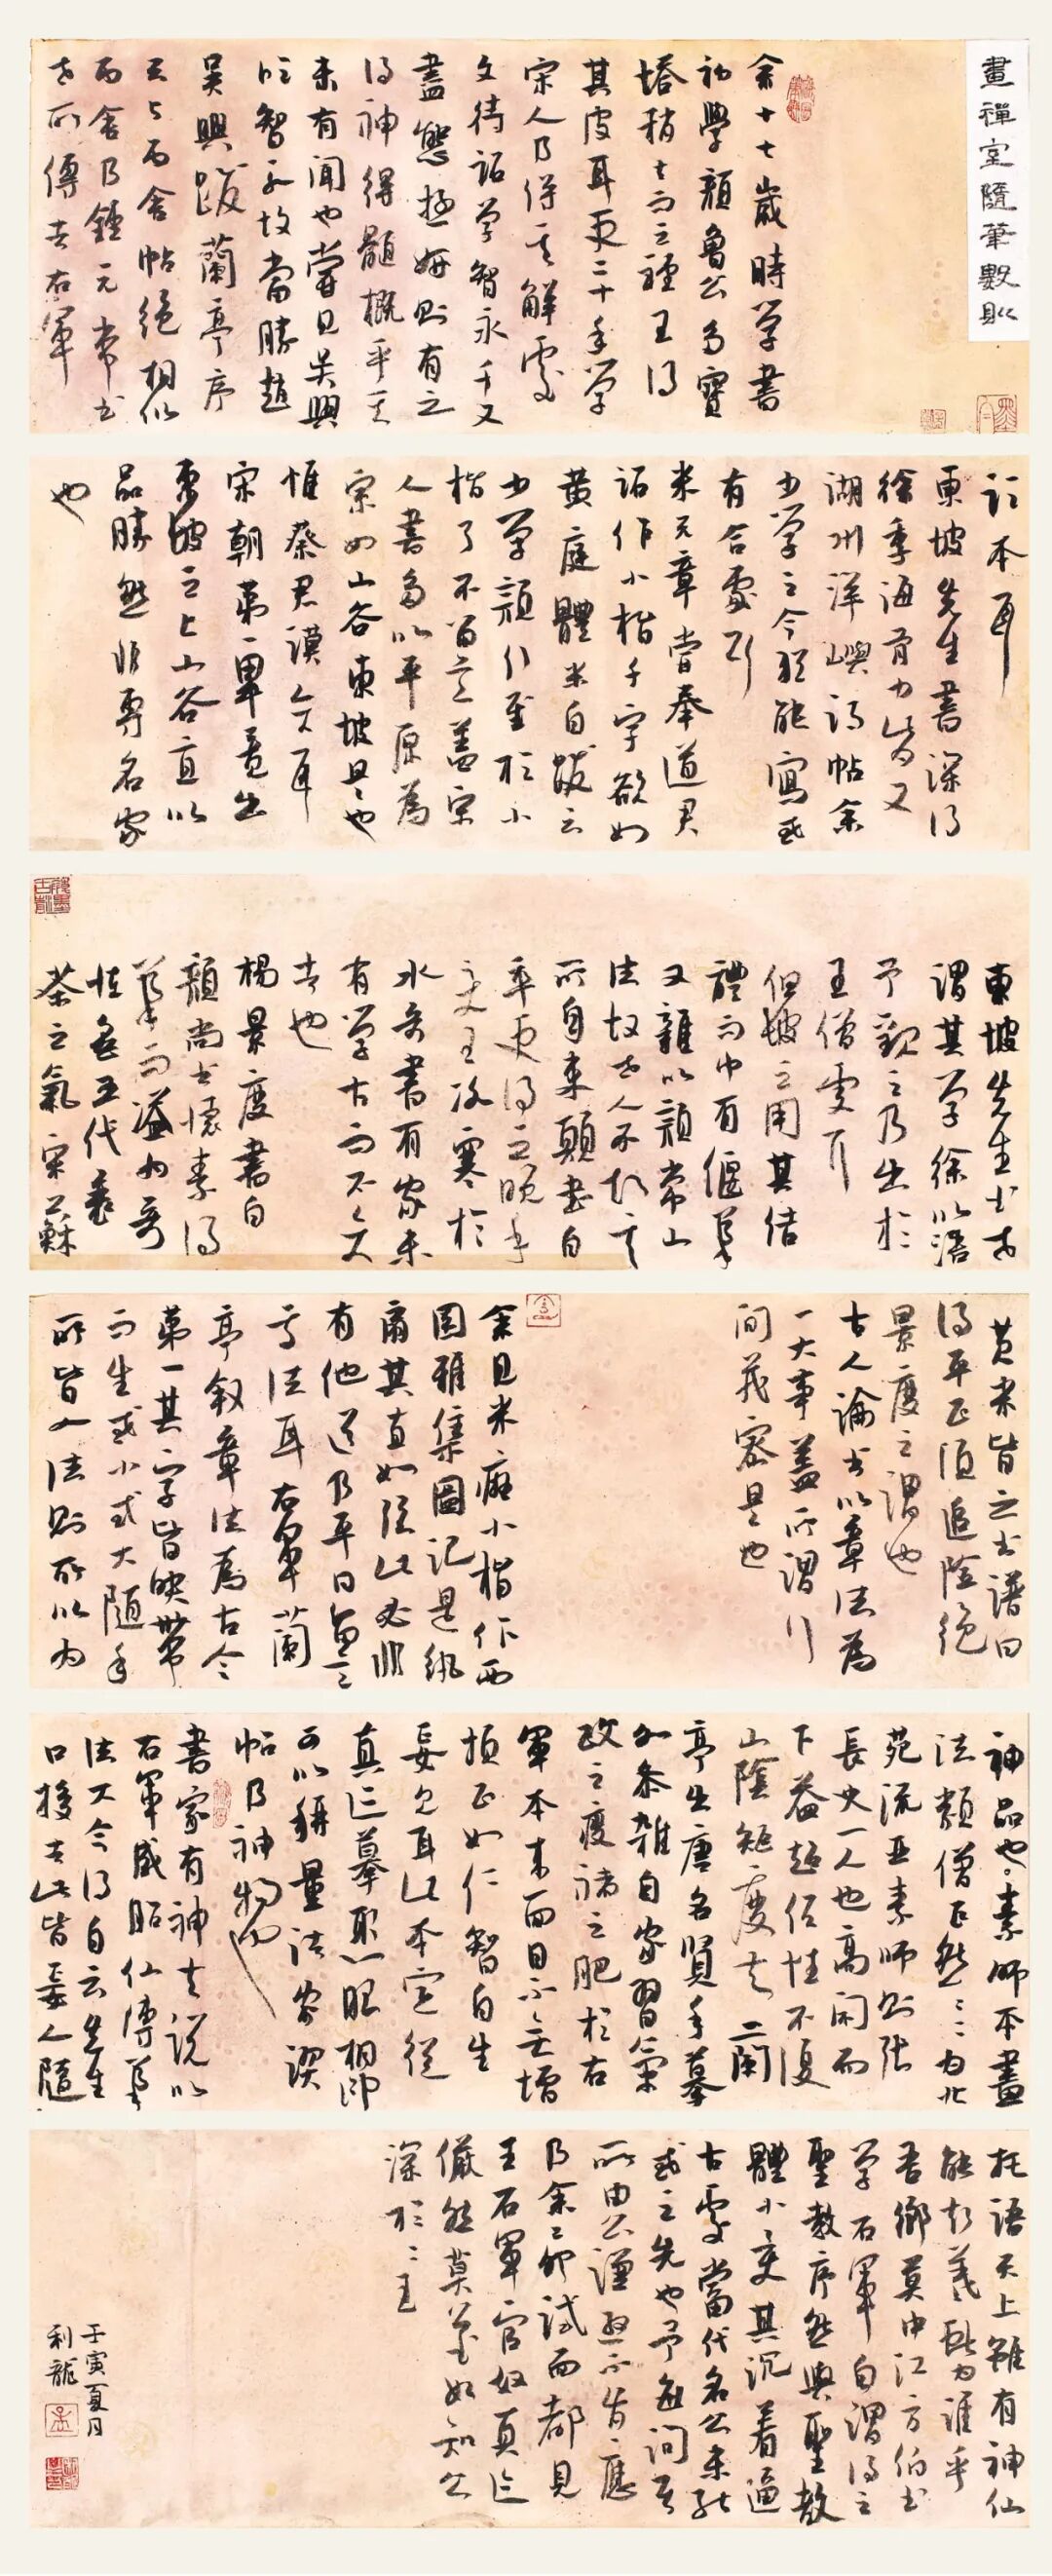 畫禪室隨筆數則
余十七歲時學書
初學顏魯公多寶
塔稍去而之鍾王得
其皮耳更二十年學
宋人乃得其解處
文待詔學智永千文
盡態極妍則有之
得神得髓概乎其
未有聞也嘗見吳興
臨智永故當勝趙
吳興跋蘭亭序
云與丙舍帖絕相似
丙舍乃鍾元常書
世所傳者右軍
臨本耳
東坡先生書深得
徐季海骨力此為文
湖州洋嶼詩帖余
少學之今猶能寫或
有合處耳
米元章嘗奉道君
詔作小楷千字欲如
黃庭體米自跋云
少學顏行至於小
楷了不留意蓋宋
人書多以平原為
宗如山谷東坡是也
惟蔡君謨少變耳
宋朝第一畢竟出
東坡之上山谷直以
品勝然非專名家
也
東坡先生書世
謂其學徐浩以
予觀之乃出於
王僧虔耳
但坡之用其結
體而中有偃筆
又雜以顏常山
法故世人不知其
所自來顛書自
率更得之晚年
一變有冰寒於
水奇書有家未
有學古而不變
者也
楊景度書自
顏尚書懷素得
筆而溢為奇
怪無五代衰
茶之氣宋蘇
黃米皆之書譜曰
得平正須追險絕
景度之謂也
古人論書以章法為
一大事蓋所謂行
間茂密是也
余見米癡小楷作西
園雅集圖記是紈
扇其直如弦此必非
有他道乃平日留意
章法耳右軍蘭
亭敘章法為古今
第一其字皆映帶
而生或小或大隨手
所皆入法則所以為
神品也素師本畫
法類僧巨然巨然為北
苑流亞素師則張
長史一人也高閑而
下益趨任性不復
山陰矩度矣二蘭
亭出唐名賢手摹
各參雜自家習氣
歐之瘦褚之肥於右
軍本來面目不無增
損正如仁智自生
妄見耳此本定從
真跡摹取心眼相印
可以稱量諸家禊
帖乃神物也
書家有神去說以
右軍感胎仙傳筆
法大令得白雲先生
口授者此皆妄人隨
托語天上雖有神仙
能知羲獻為誰乎
吾鄉莫中江方伯書
學右軍自謂得之
聖教序然與聖教
體小變其沉著逼
古處當代名公未能
或之先也予每詢其
所由公謙遜不肯應
及余己卯試留都見
王右軍官奴真跡
儼然莫公書始知公
深於二王
壬寅夏月
利龍